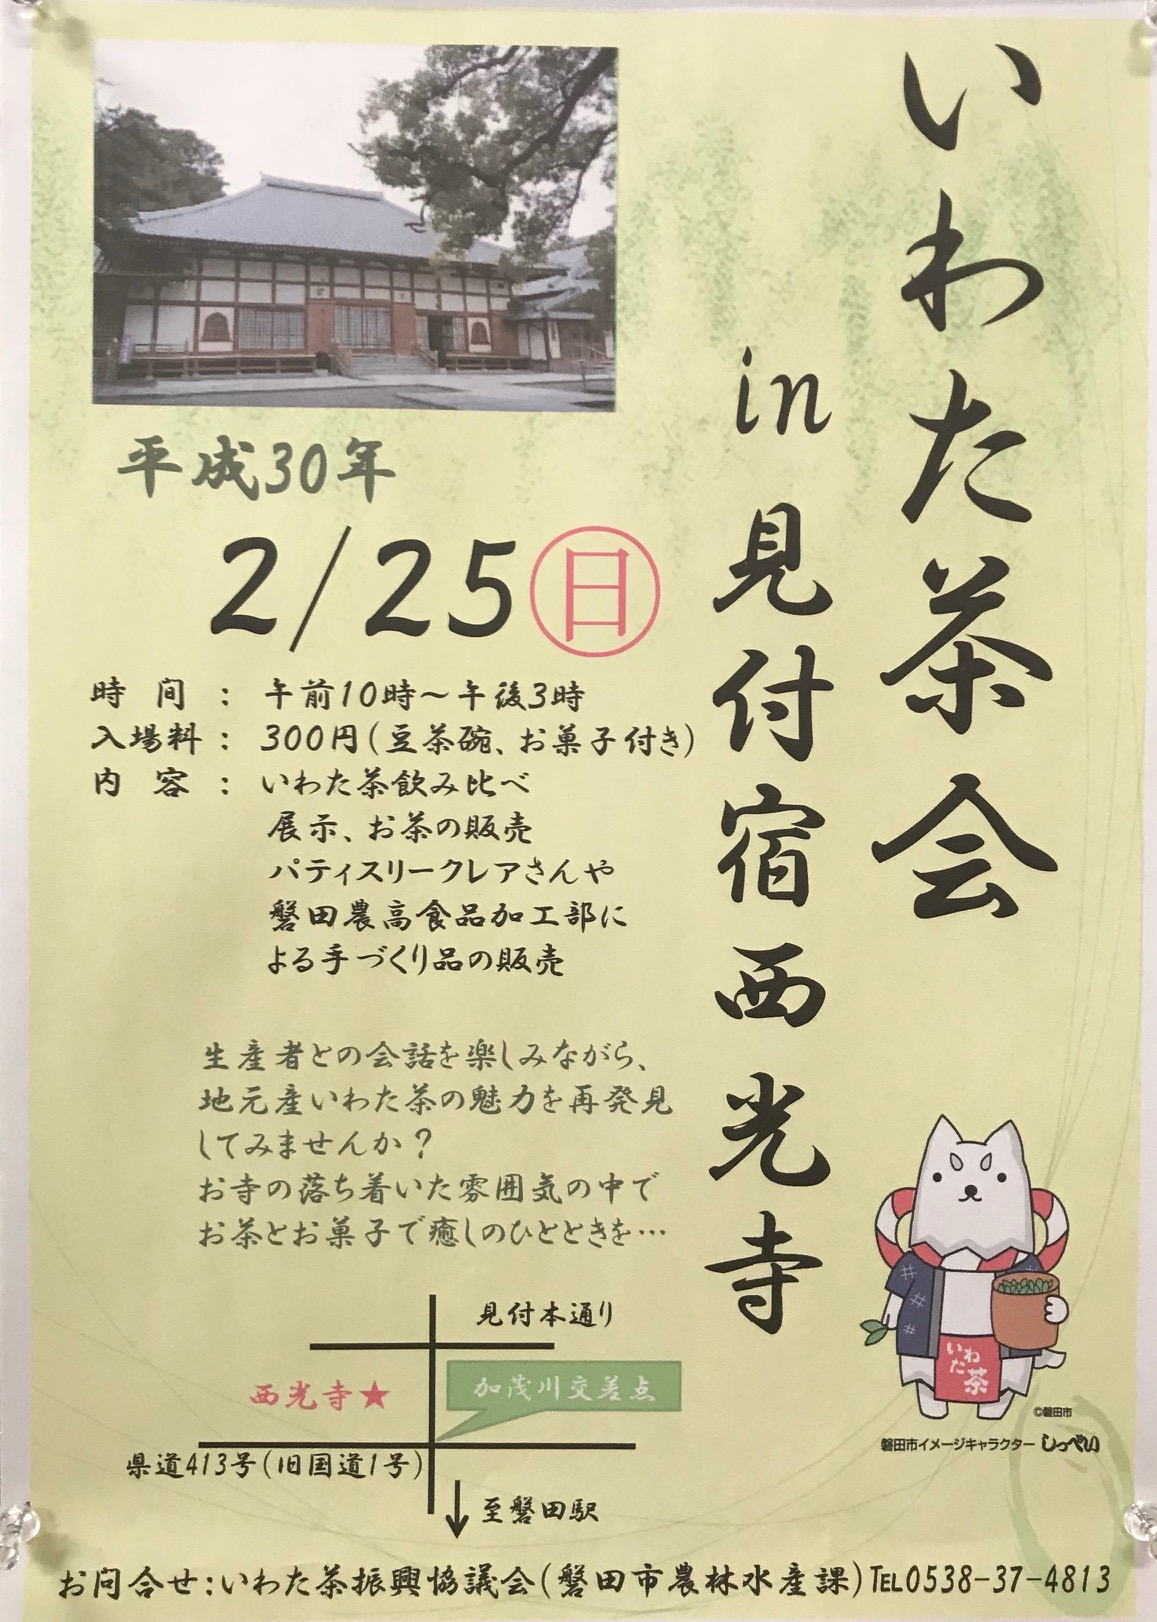 いわた茶会
in見付宿西光寺
平成30年
2/25日
時間：午前10時～午後3時
入場料：300円(豆茶碗、お菓子付き)
内容：いわた茶飲み比べ
展示、お茶の販売
パティスリークレアさんや
磐田農高食品加工部に
よる手づくり品の販売
生産者との会話を楽しみながら、
地元産いわた茶の魅力を再発見
してみませんか？
お寺の落ち着いた雰囲気の中で
お茶とお菓子で癒しのひとときを…
見付本通り
西光寺★
加茂川交差点
県道413号(旧国道1号)
至磐田駅
いわた茶
©磐田市
磐田市イメージキャラクター しっぺい
お問合せ:いわた茶振興協議会(磐田市農林水産課)TEL0538-37-4813